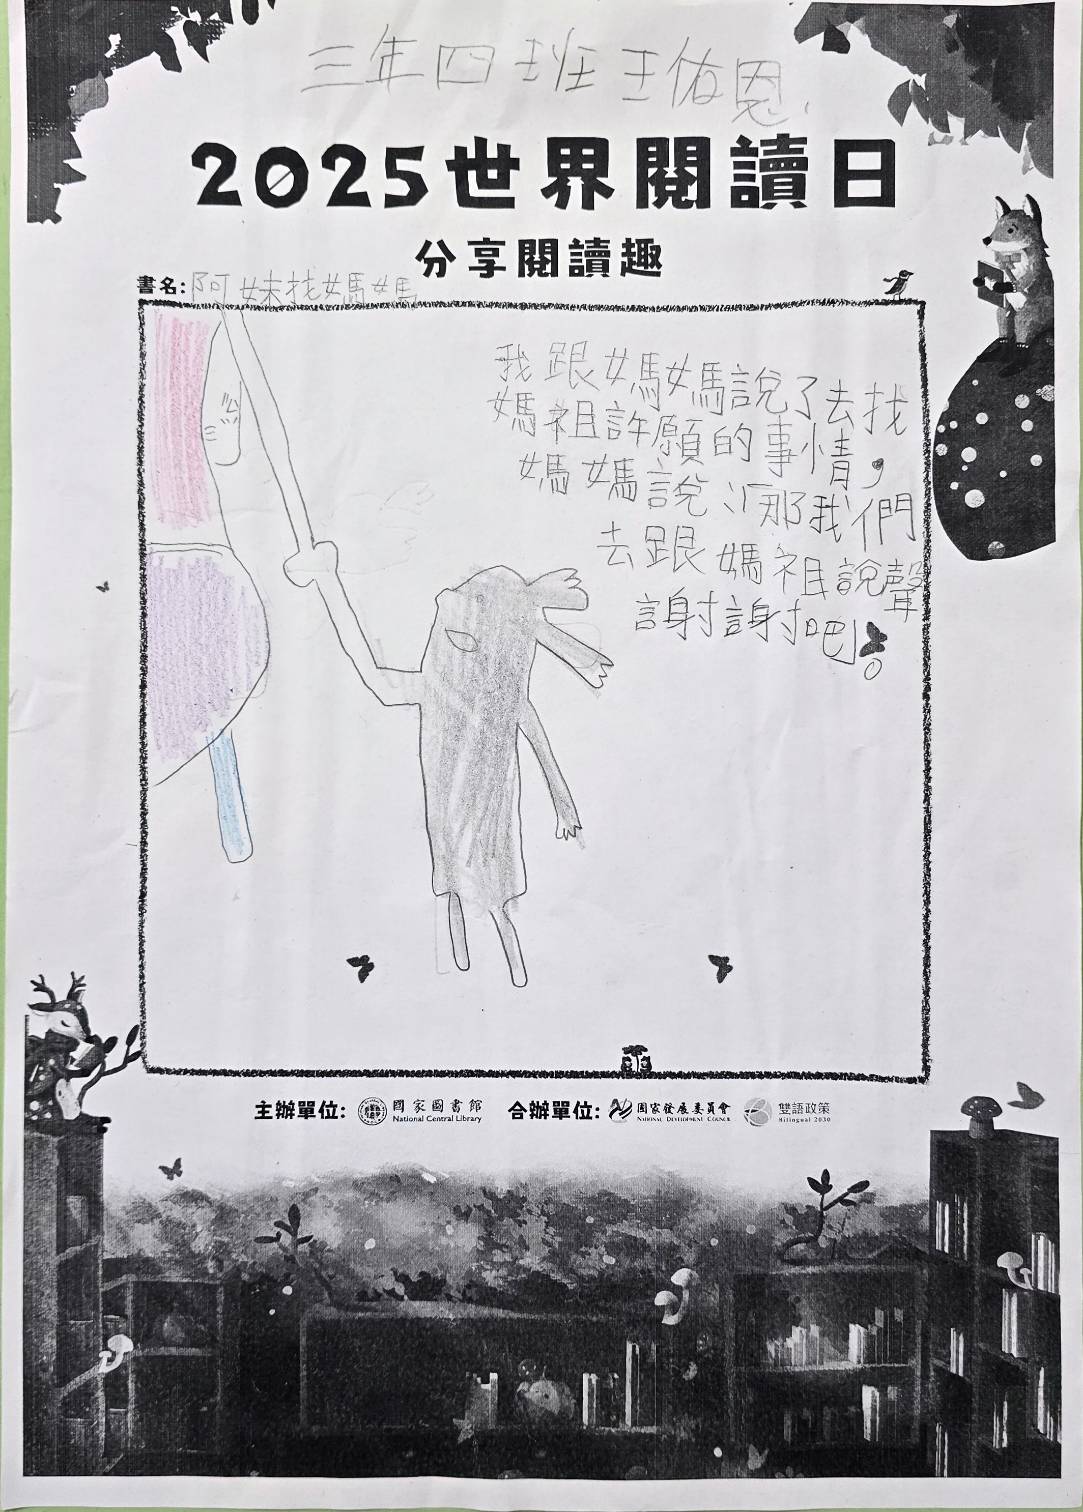 三年四班王佑恩
2025世界閱讀日
分享閱讀趣
書名:阿妹找媽媽
我跟媽媽說了去找
媽祖許願的事情,
媽媽說:那我們
去跟媽祖說聲
謝謝吧!。
主辦單位: 國家圖書館 National Central Library 合辦單位: 國家發展委員會 National Development Council 雙語政策 Bilingual 2030